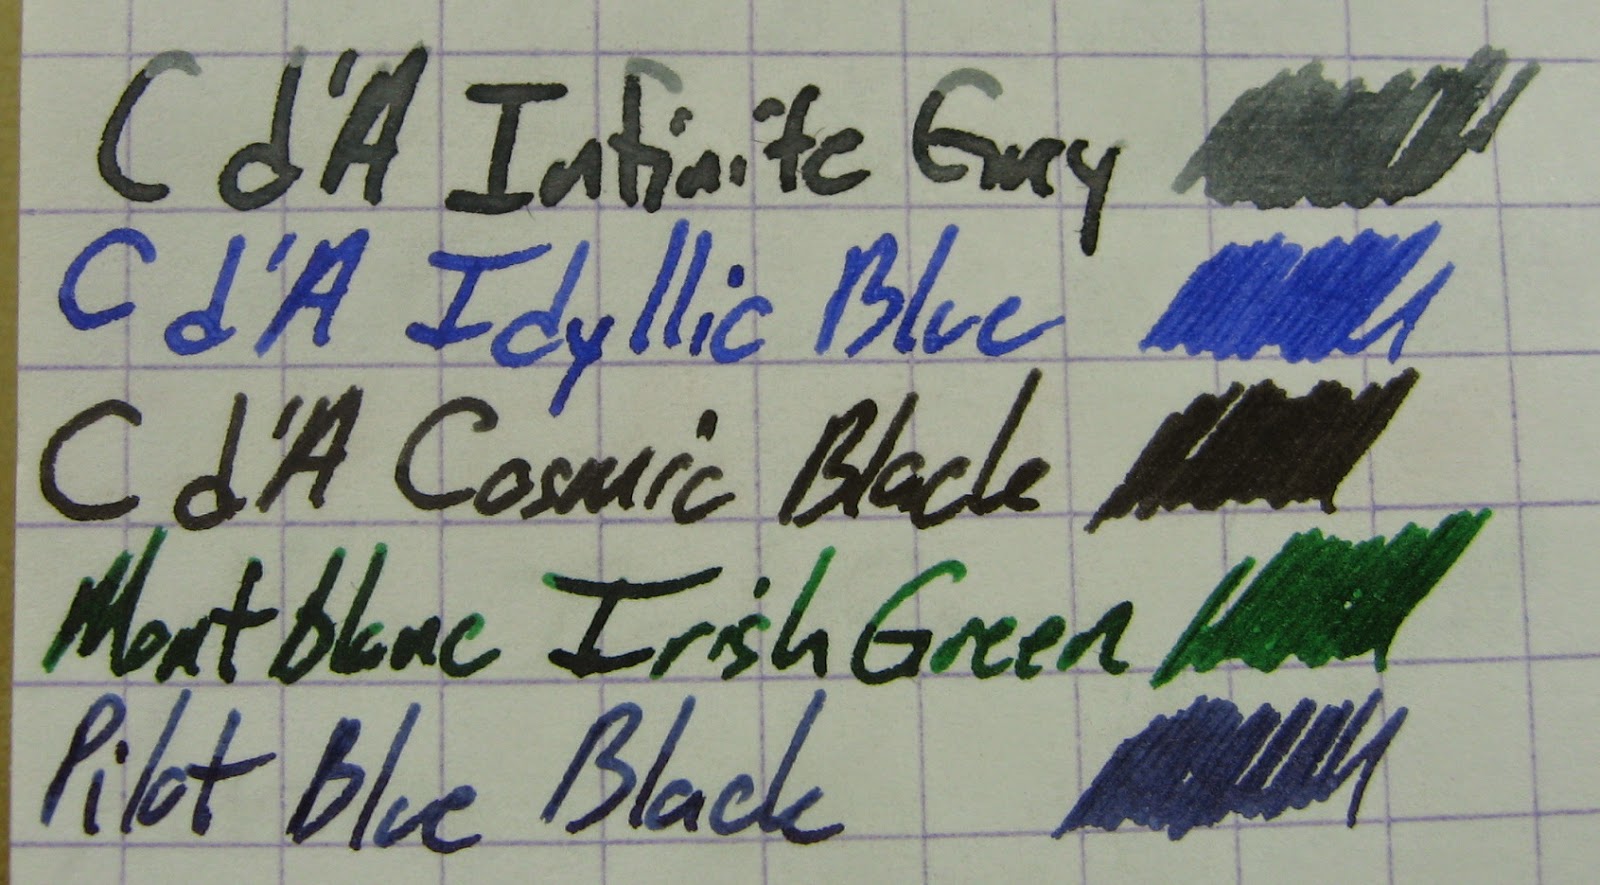 C d'A Infinite Grey
C d'A Idyllic Blue
C d'A Cosmic Black
Montblanc Irish Green
Pilot Blue Black